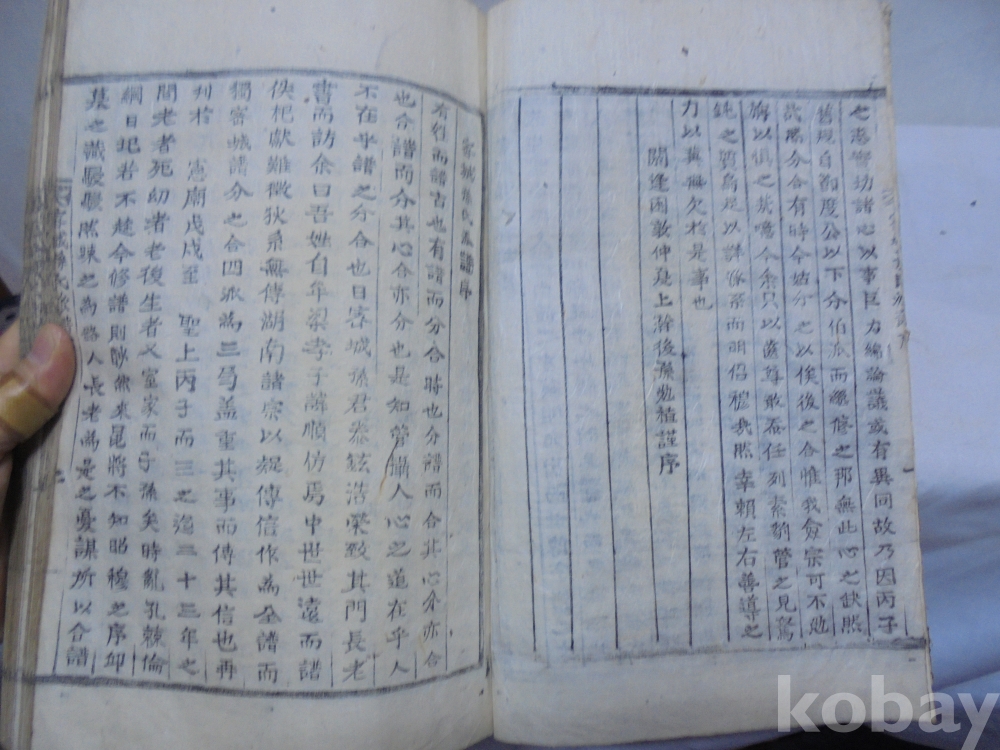 之志鄕坊諸心以事巨力綿論議或有異同故乃因丙子
舊規自節度公以下分伯派而繼修之那無此心之缺然
然而分合有時今姑分之以俟後之合惟我僉宗可不勉
旃以愼之哉噫今余只以
尊敢忝任列素
管之見駑
鈍之質烏足以詳係派而明昭穆哉然幸賴左右善導之
力以冀無欠於是事也
閼逢困敦仲
是上澣後孫
植謹序
密城孫氏族譜序
有姓而譜古也有譜而分合時也分譜而合其心分亦合
也合譜而分其心合亦分也是知管攝人心之道在乎人
不在乎譜之分合也日密城孫君泰鉉浩榮致其門長老
書而訪余曰吾姓自年梁孝子諱順仿焉中世世遠而譜
佚杞獻難徵狄系無傳湖南諸宗以疑傳信作爲全譜而
獨密城譜分之合四派爲三
盖重其事而傳其信也再
刋於 憲廟戊戌至 聖上丙子而三之迨三十三年之
間老者死幼者老後生者又室家而子孫矣時亂孔棘倫
綱日圮若不趁今修譜則眇然來昆將不知昭穆之序
墓之識駸駸然昧之爲
人長老爲是之憂謀所以合譜
kobay